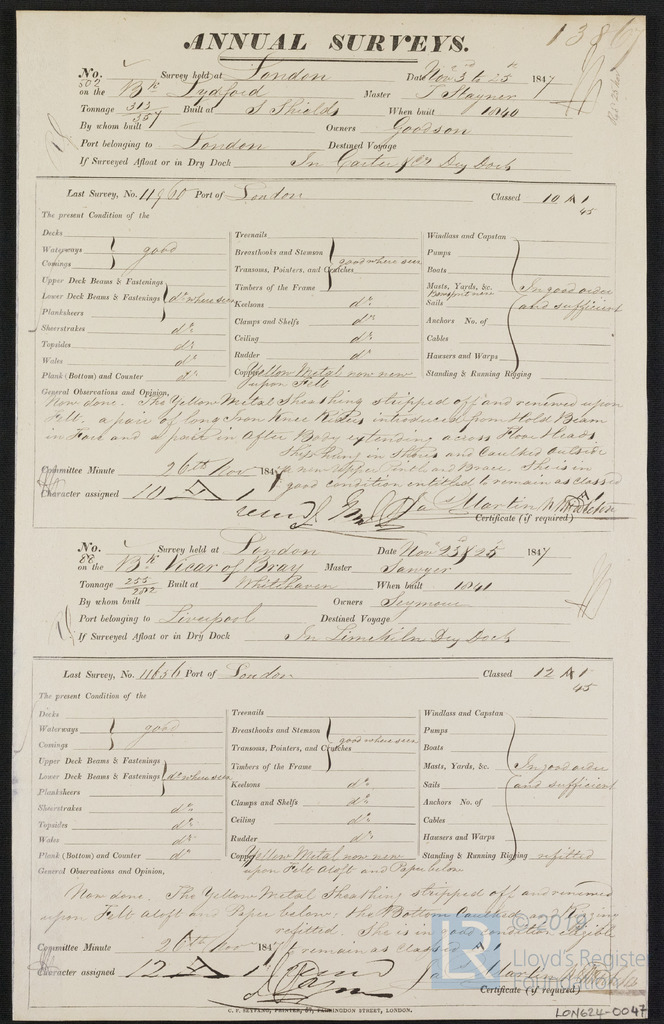 13867
ANNUAL SURVEYS.
No. 502 Survey held at London Date Nov 3 to 25th 1847
on the Bk Lydford Master T Stayner
Tonnage 313/357 Built at S Shields When built 1840
By whom built Owners Goodson
Port belonging to London Destined Voyage
If Surveyed Afloat or in Dry Dock In Carter & Co Dry Dock
Last Survey, No. 11960 Port of London Classed 10 A 1
45
The present Condition of the
Decks
Waterways good
Comings
Upper Deck Beams & Fastenings
Lower Deck Beams & Fastenings do where seen
Planksheers
Sheerstrakes do
Topsides do
Wales do
Plank (Bottom) and Counter do
Treenails
Breasthooks and Stemson good where seen
Transoms, Pointers, and Crutches
Timbers of the Frame
Keelsons do
Clamps and Shelfs do
Ceiling do
Rudder do
Copper Yellow Metal now new
upon Felt
Windlass and Capstan
Pumps
Boats
Masts, Yards, &c. In good order
Bowsprit new
Sails and sufficient
Anchors No. of
Cables
Hausers and Warps
Standing & Running Rigging
General Observations and Opinion,
Now done. The Yellow Metal Sheathing stripped off and renewed upon
Felt. a pair of long Iron Knee Riders introduced from Hold Beam
in Fore and a pair in After Body extending across Floor Heads
Ship hung in Shores and Caulked outside
Committee Minute 26th Nov 1847 a new Upper Pintle and Brace. She is in
good condition entitled to remain as classed
Character assigned 10 A 1 A 1
Martin
Certificate (if required)
No. 88 Survey held at London Date Nov 23 & 25 1847
on the Bk Vicar of Bray Master Sawyer
Tonnage 255/282 Built at Whitehaven When built 1841
By whom built Owners Seymour
Port belonging to Liverpool Destined Voyage
If Surveyed Afloat or in Dry Dock In Limekiln Dry Dock
Last Survey, No. 11656 Port of London Classed 12 A 1
45
The present Condition of the
Decks
Waterways good
Comings
Upper Deck Beams & Fastenings
Lower Deck Beams & Fastenings do where seen
Planksheers
Sheerstrakes do
Topsides do
Wales do
Plank (Bottom) and Counter do
Treenails
Breasthooks and Stemson good where seen
Transoms, Pointers, and Crutches
Timbers of the Frame
Keelsons do
Clamps and Shelfs do
Ceiling do
Rudder do
Copper Yellow Metal now new
upon Felt aloft and Paper below
Windlass and Capstan
Pumps
Boats
Masts, Yards, &c. In good order
Sails and sufficient
Anchors No. of
Cables
Hausers and Warps
Standing & Running Rigging refitted
General Observations and Opinion,
Now done. The Yellow Metal Sheathing stripped off and renewed
upon Felt aloft and Paper below, the Bottom Caulked and Rigging
refitted. She is in good condition Eligible
Committee Minute 26th Nov 1847 remain as classed A 1
Character assigned 12 A 1
Martin
Certificate (if required)
C. F. SEYFANG, PRINTER, 57, FARRINGDON STREET, LONDON.
LR
© 2019
Lloyd's Register
Foundation
LON624-0047